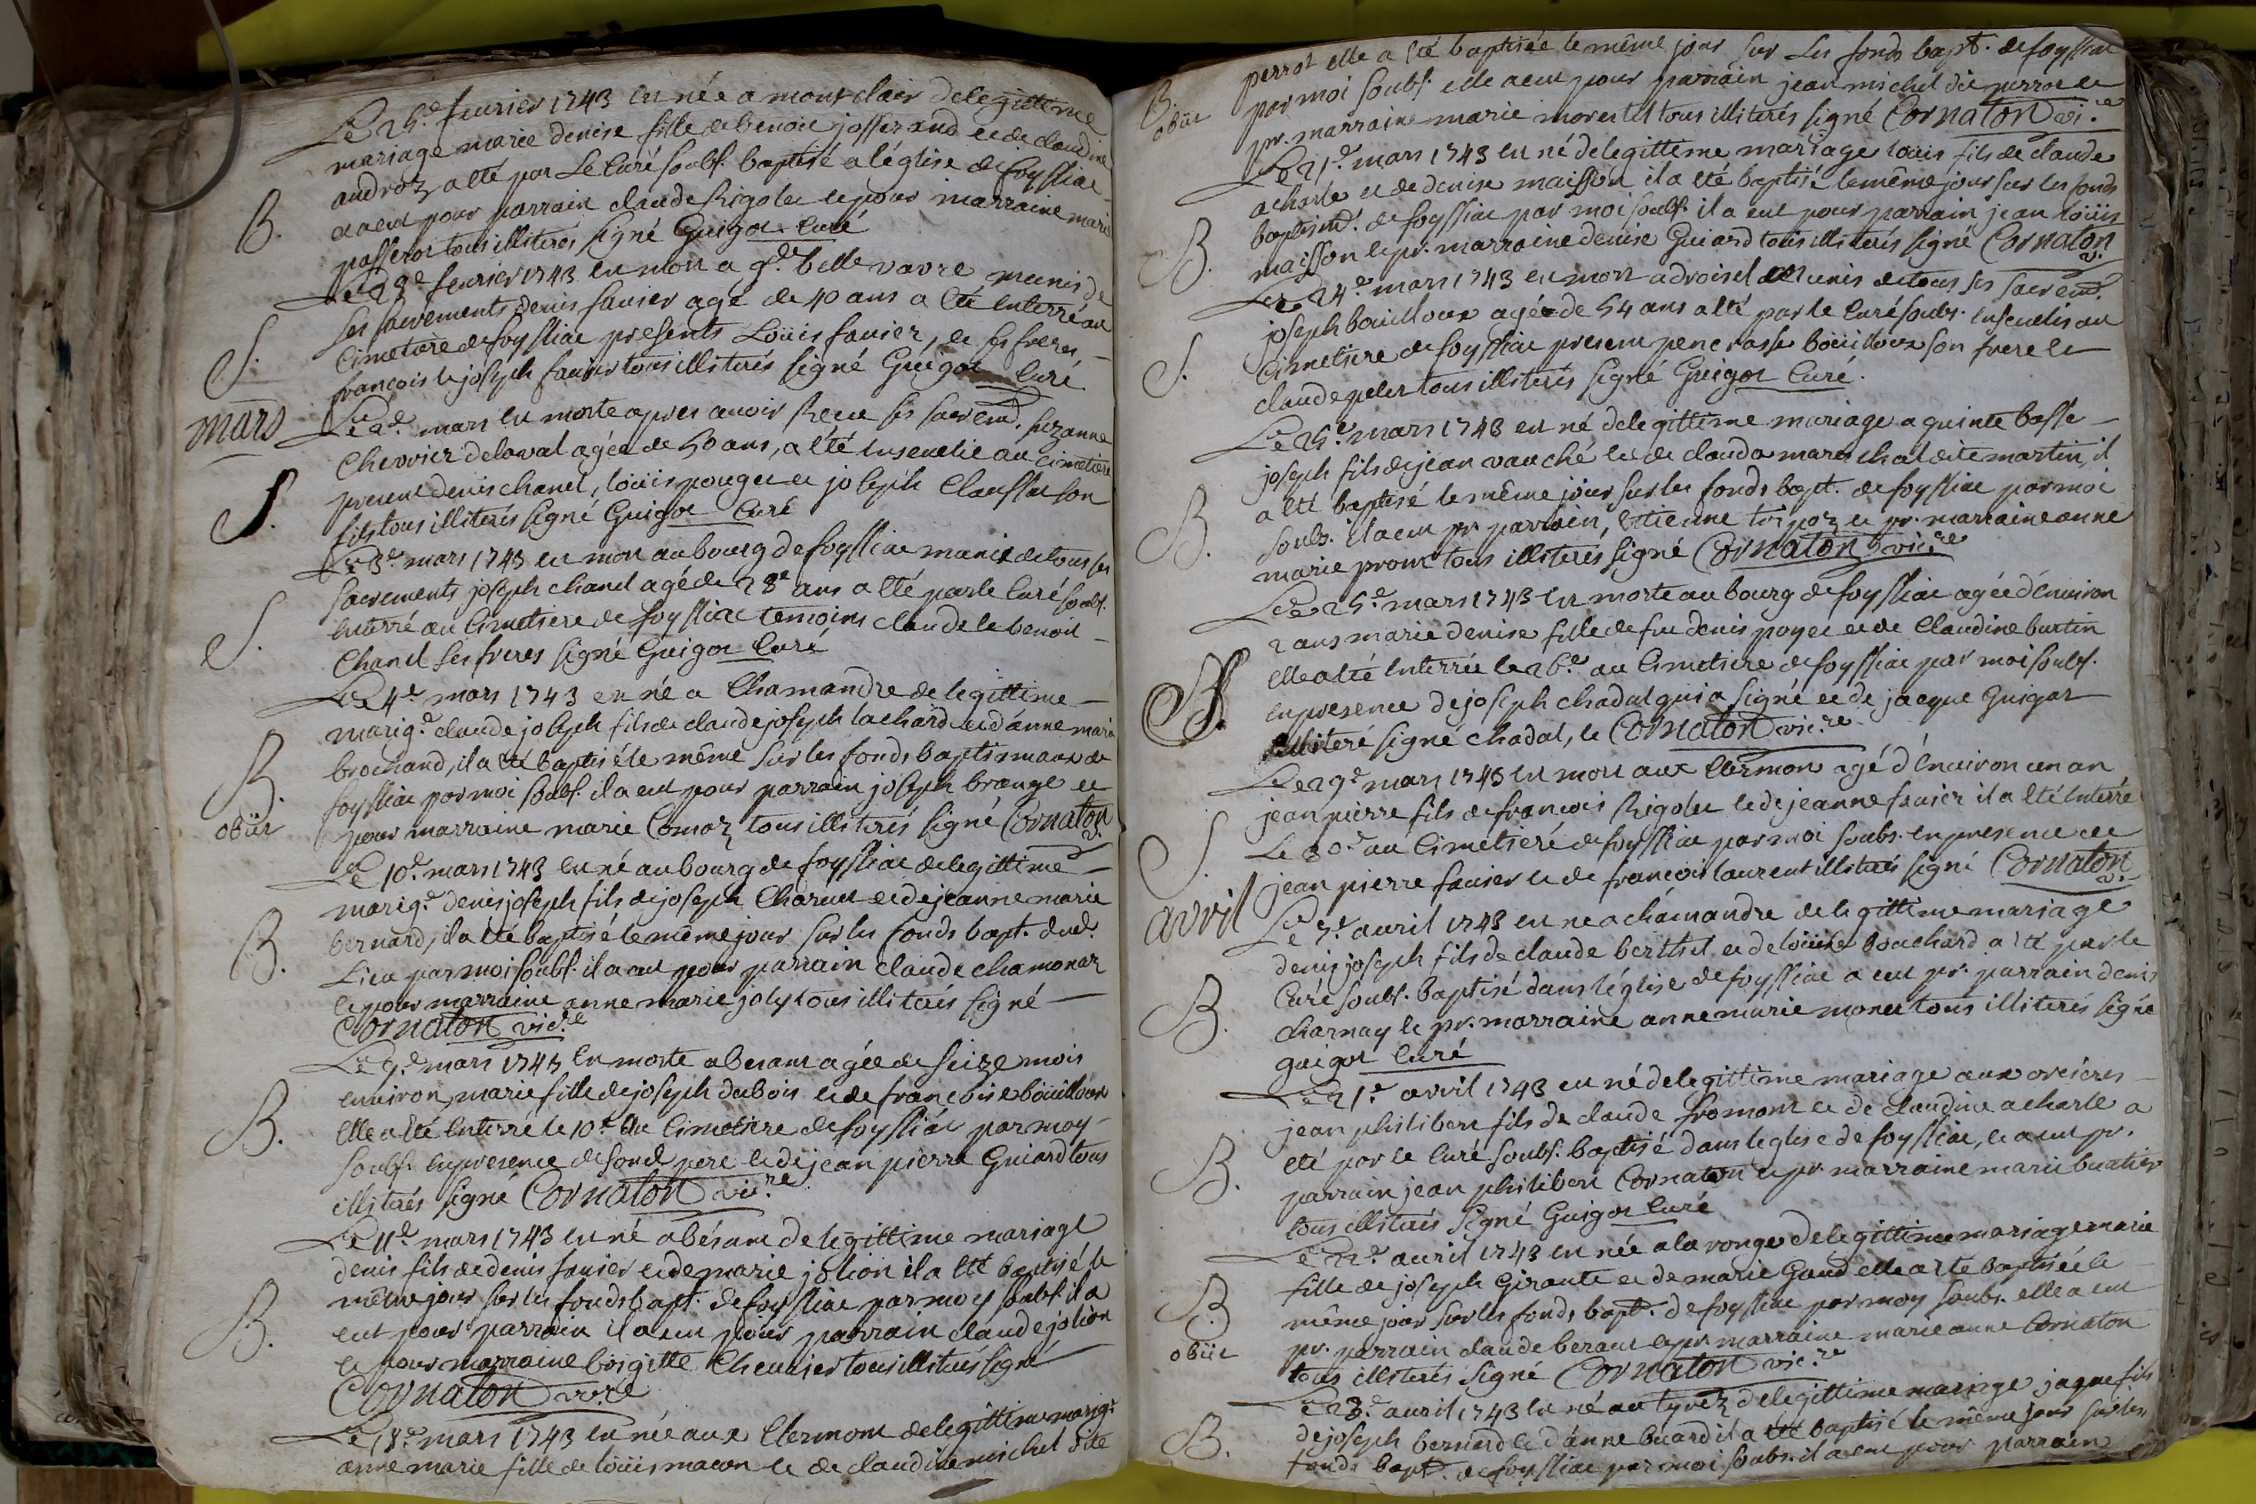 Le 25.e feurier 1743 est née a mont clair de legittime
mariage marie denise fille de benoit josserand et de claudine
androz a été par Le Curé soubs. baptisé a l'église de foyssiac
a eut pour parrain claude Rigolet et pour marraine marie
B.
passerot tous illiterés signé Guigot Curé
Le 28.e feurier 1743 est mort a g.de belle vavre munis de
ses sacrements denis fauier agé de 40 ans a été Enterré au
Cimetiere de foyssiac presents Loüis fauier, et ses freres
S.
françois et joseph fauier tous illiterés signé Guigot Curé
mars
Le 2.e mars est morte apres auoir Receu ses sacrem. suzanne
Chevvier de laval agée de 50 ans, a été Enseuelie au cimetiere
present denis chanel, loüis pouget et joseph Claussat son
S.
fils tous illiterés signé Guigot Curé
Le 3.e mars 1743 est mort au bourg de foyssiac munis de tous ses
sacrements joseph chanel agé de 28 ans a été par le Curé soubs.
Enterré au Cimetiere de foyssiac temoins claude et benoit
S.
Chanel ses freres signé Guigot Curé
Le 4.e mars 1743 est né a Chamandre de legittime
marig.e claude joseph fils de claude joseph lachard et d'anne marie
brochand, il a été baptisé le même sur les fonds baptismaux de
B.
foyssiac par moi soubs. il a eut pour parrain joseph brange et
obiit
pour marraine marie Comoz tous illiterés signé Cornaton v.
Le 10.e mars 1743 est né au bourg de foyssiac de legittime
marig.e denis joseph fils de joseph Charnet et de jeanne marie
bernard, il a été baptisé le même jour sur les fonds bapt. dud.
B.
Lieu par moi soubs. il a eut pour parrain claude chamonar
et pour marraine anne marie joly tous illiterés signé
Cornaton vic.re
Le 9.e mars 1743 est morte a besant agée de seize mois
enuiron, marie fille de joseph dubois et de françoise boüilloux
Elle a été Enterré le 10.e au Cimetiere de foyssiac par moy
B.
soubs. en presence de son pere et de jean pierre Guiard tous
illiterés signé Cornaton vic.re
Le 11.e mars 1743 est né a bésant de legittime mariage
denis fils de denis fauier et de marie jolion il a été baptisé le
même jour sur les fonds bapt. de foyssiac par moy soubs. il a
B.
eut pour parrain il a eut pour parrain claude jolion
et pour marraine brigitte Cheuuier tous illiterés signé
Cornaton vic.re
Le 18.e mars 1743 est née aux Clermont de legittime marig.e
anne marie fille de loüis macon et de claudine michel dite
perrot elle a été baptisée le même jour sur les fonds bapt. de foyssiac
B.
par moi soubs. elle a eut pour parrain jean michel dit perrot et
obiit
pr. marraine marie morestel tous illiterés signé Cornaton vic.re
Le 21.e mars 1743 est né de legittime mariage loüis fils de claude
acharle et de denise maisson il a été baptisé le même jour sur les fonds
baptism. de foyssiac par moi soubs. il a eut pour parrain jean loüis
B.
maisson et pr. marraine denise Guiard tous illiterés signé Cornaton v.
Le 24.e mars 1743 est mort a droisel munis de tous ses sacrem.
joseph bouilloux agée de 54 ans a été par le Curé soubs. enseuelis au
Cimetiere de foyssiac present boüilloux son frere et
S.
claude tous illiterés signé Guigot Curé.
Le 25.e mars 1743 est né de legittime mariage a quinte basse
joseph fils de jean vauché et de clauda mareschal dite martin, il
a été baptisé le même jour sur les fonds bapt. de foyssiac par moi
B.
soubs. il a eut pr. parrain, Estienne et pr. marraine anne
marie tous illiterés signé Cornaton vic.re
Le 25.e mars 1743 est morte au bourg de foyssiac agée d'enuiron
2 ans marie denise fille de feu denis poget et de Claudine burtin
elle a été Enterrée le 26.e au Cimetiere de foyssiac par moi soubs.
S.
en presence de joseph chadal qui a signé et de jacque Guigat
illiteré signé chadal, et Cornaton vic.re
Le 29.e mars 1743 est mort aux Clermon agé d'enuiron un an
jean pierre fils de françois Rigolet et de jeanne fauier il a été Enterré
Le 30.e au Cimetiere de foyssiac par moi soubs. en presence de
S.
jean pierre fauier et de françois laurent illiterés signé Cornaton v.
avril
Le 7.e auril 1743 est né a chamandre de legittime mariage
denis joseph fils de claude berthet et de loüise bouchard a été par le
Curé soubs. baptisé dans l'église de foyssiac a eut pr. parrain denis
B.
charnay et pr. marraine anne marie monet tous illiterés signé
Guigot Curé
Le 21.e avril 1743 est né de legittime mariage aux orcieres
jean philibert fils de claude fromont et de claudine acharle a
été par le Curé soubs. baptisé dans l'eglise de foyssiac, et a eut pr.
B.
parrain jean philibert Cornaton et pr marraine marie buatier
tous illiterés signé Guigot Curé
Le 22.e auril 1743 est née a la ronge de legittime mariage marie
fille de joseph Giraute et de marie Gaud elle a été baptisée le
B.
même jour sur les fonds bapt. de foyssiac par moy soubs. elle a eut
obiit
pr. parrain claude beraut et pr. marraine marie anne Cornaton
tous illiterés signé Cornaton vic.re
Le 23.e auril 1743 est né au tyrez de legittime mariage jaque fils
de joseph bernard et d'anne buard il a été baptisé le même jour sur les
B.
fonds bapt. de foyssiac par moi soubs. il a eut pour parrain